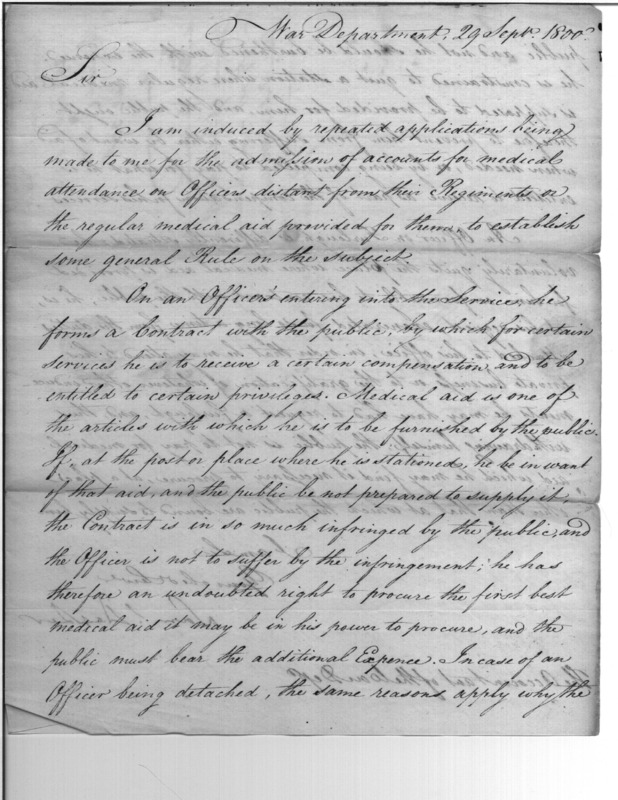 War Department, 29 Sept.r 1800.
Sir
I am induced by repeated applications being
made to me for the admission of accounts for medical
attendance on Officers distant from their Regiments or
the regular medical aid provided for them, to establish
some general Rule on the subject
On an Officer's entering into the Services, he
forms a Contract with the public, by which for certain
services he is to receive a certain compensation, and to be
entitled to certain privileges. Medical aid is one of
the articles with which he is to be furnished by the public.
If, at the post or place where he is stationed, he be in want
of that aid, and the public be not prepared to supply it,
the Contract is in so much infringed by the public, and
the Officer is not to suffer by the infringement; he has
therefore an undoubted right to procure the first best
medical aid it may be in his power to procure, and the
public must bear the additional Expence. In case of an
Officer being detached, the same reasons apply why the